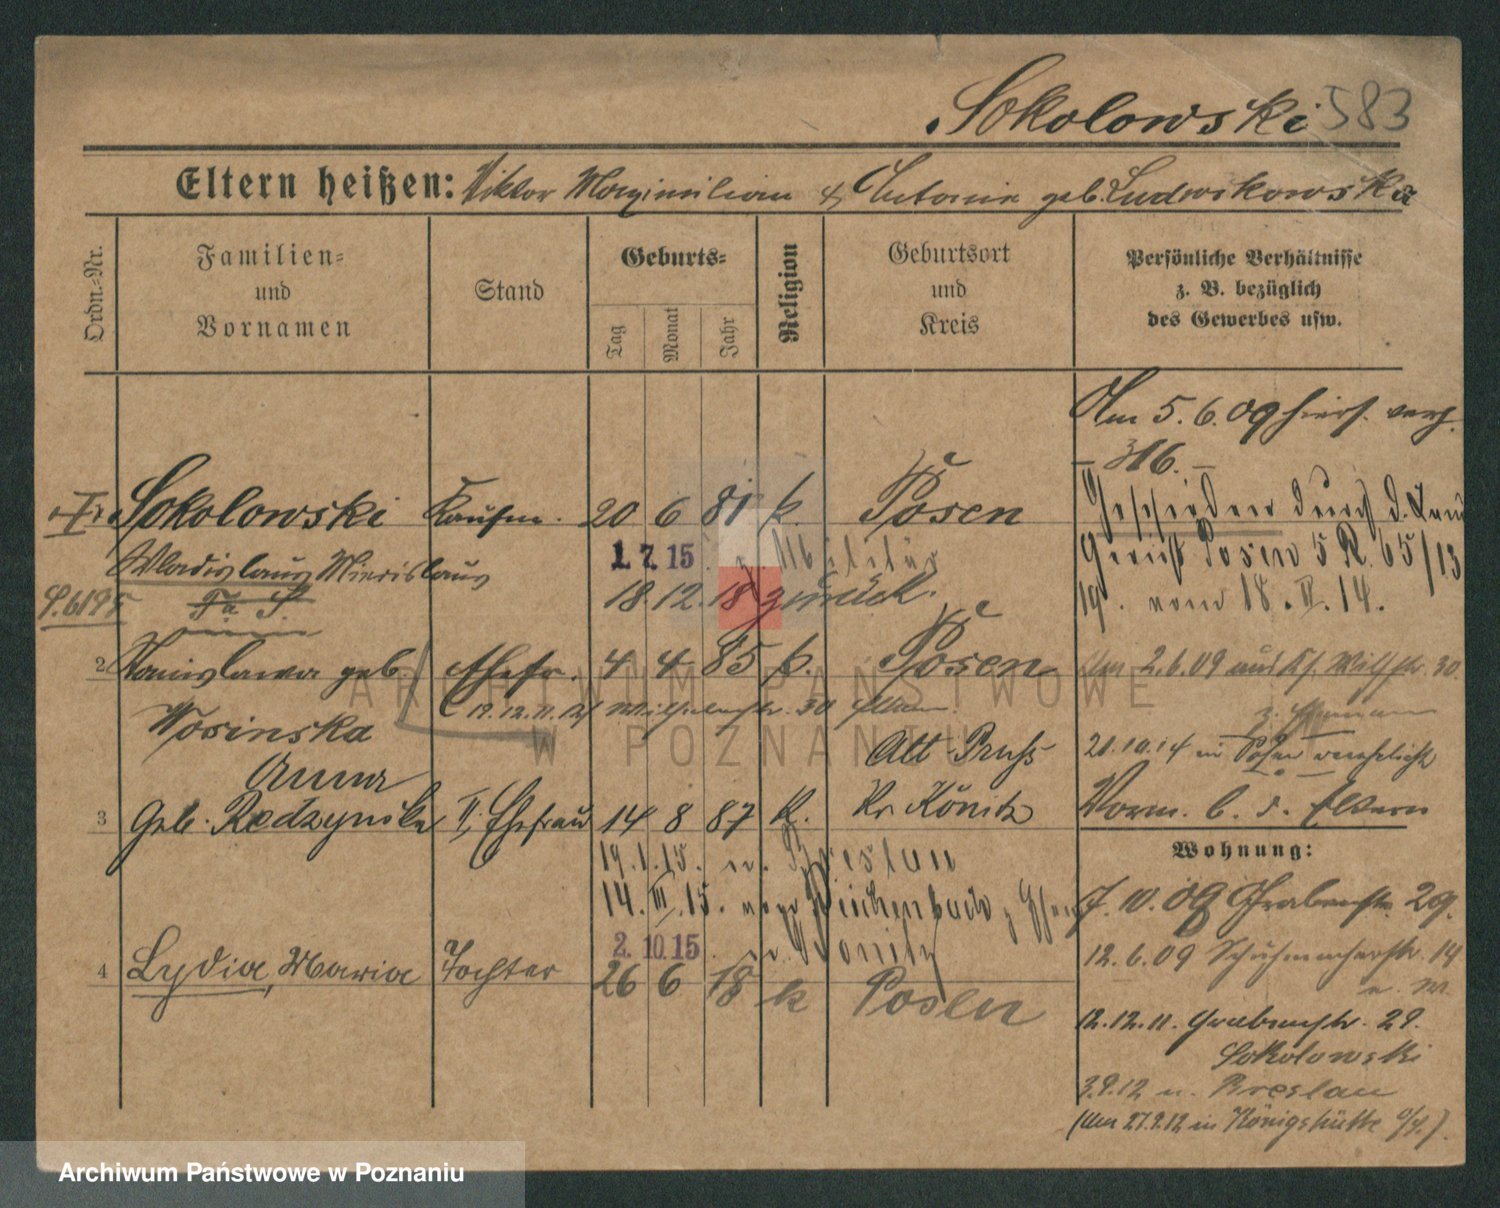 Sokolowski 583
Eltern heißen: Viktor Maximilian & Antonie geb. Ludwikowska
Ordn.-Nr.
Familien-
und
Vornamen
Stand
Geburts-
Tag
Monat
Jahr
Religion
Geburtsort
und
Kreis
Persönliche Verhältnisse
z. B. bezüglich
des Gewerbes usw.
Am 5.6.09 hiers. verh.
- 316. -
Sokolowski Kaufm. 20 6 81 k. Posen
Geschieden durch d. Land
gericht Posen 5 R. 65/13
19. vom 18.II.14.
Wladislaus Miecislaus
1.7.15. z. Militär
18.12.18 zurück.
Fa. S.
2 Stanislawa geb. Ehefr. 4 4 85 k. Posen
Wosinska
19.12.11. Wilhelmstr. 30 Eltern.
Am 2.6.09 aus Wilhstr. 30
20.10.14 in Posen verehelicht
Anna
3 Geb. Redzynska II. Ehefrau 14 8 87 K.
Alt Prußs
Kr. Könitz
Vorm. b. d. Eltern
19.1.15. n. Breslau
14.III.15. von Reichenbach
2.10.15. n. Bonitz
4 Lydia, Maria Tochter 26 6 18 k Posen
Wohnung:
7.10.09 Grabenstr. 29.
12.6.09 Schuhmacherstr. 14
12.12.11. Grabenstr. 29.
Sokolowski
3.9.12 n. Breslau
(Am 27.9.12 in Königshütte O/S.)
ARCHIWUM PAŃSTWOWE
W POZNANIU
Archiwum Państwowe w Poznaniu